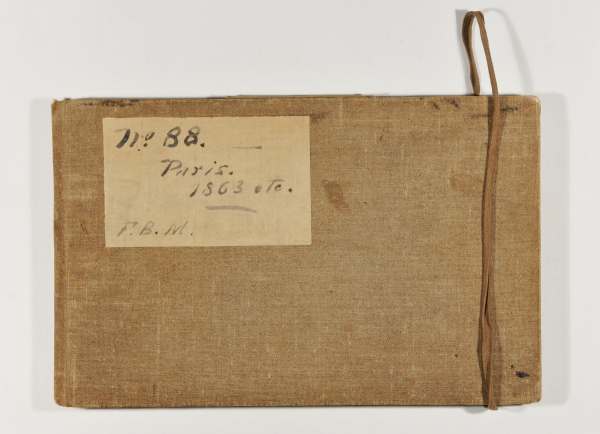 No 88.
Paris.
1863 etc.
F.B.M.